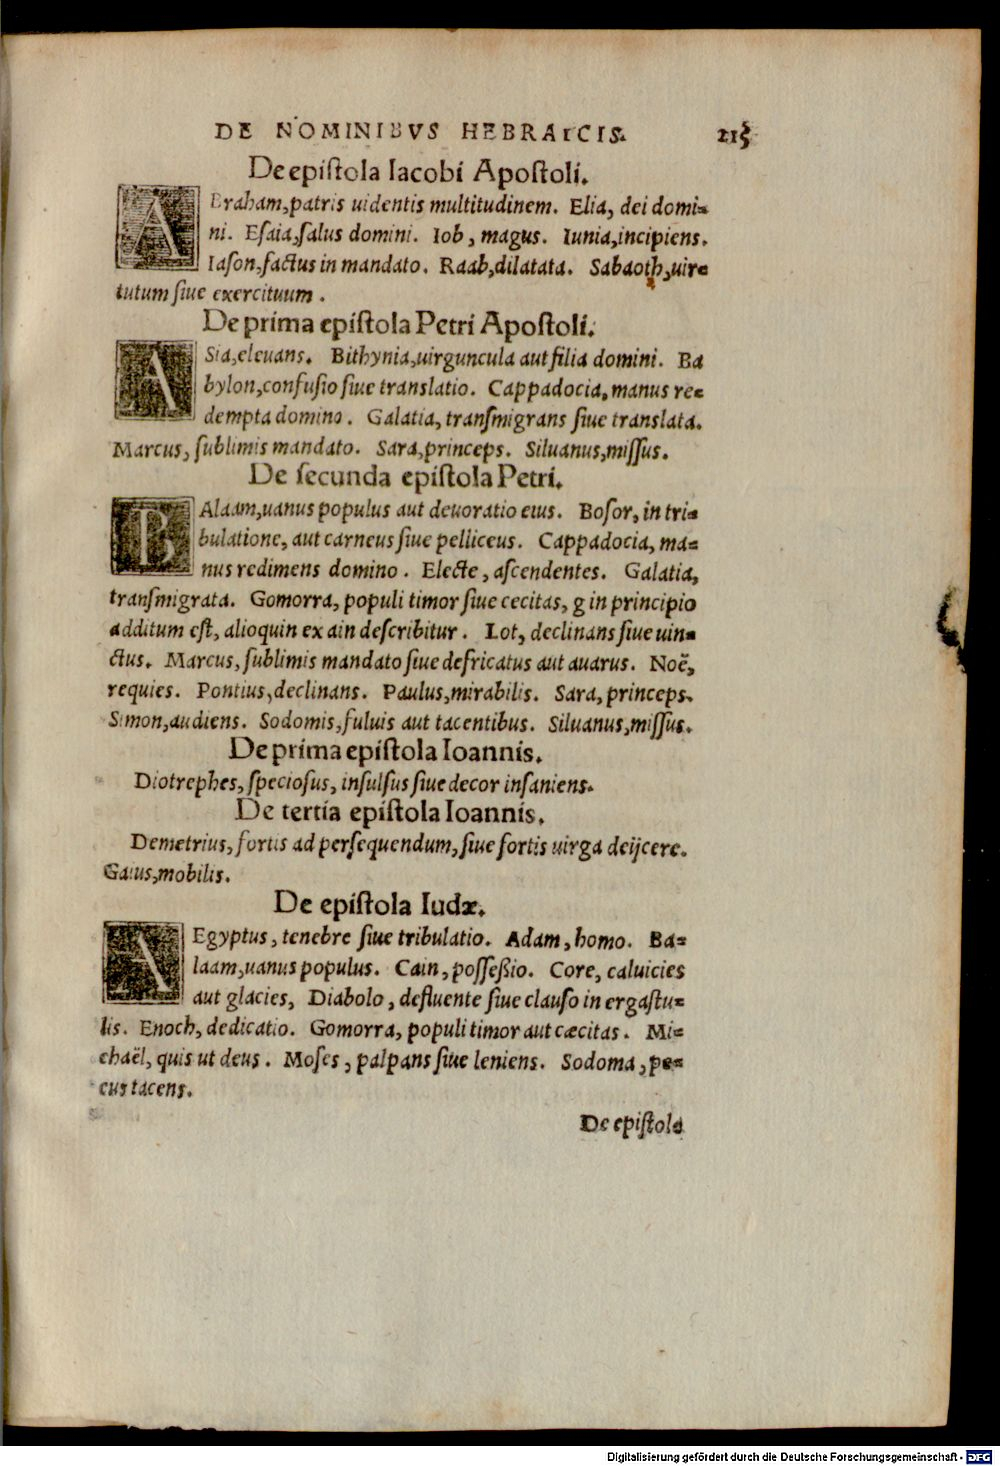 DE NOMINIBVS HEBRAICIS. 215
De epistola Iacobi Apostoli.
ABraham, patris uidentis multitudinem. Elia, dei domi-
ni. Esaia, salus domini. Iob, magus. Iunia, incipiens.
Iason, factus in mandato. Raab, dilatata. Sabaoth, uir-
tutum siue exercituum.
De prima epistola Petri Apostoli.
ASia, eleuans. Bithynia, uirguncula aut filia domini. Ba
bylon, confusio siue translatio. Cappadocia, manus re-
dempta domino. Galatia, transmigrans siue translata.
Marcus, sublimis mandato. Sara, princeps. Siluanus, missus.
De secunda epistola Petri.
BAlaam, uanus populus aut deuoratio eius. Bosor, in tri-
bulatione, aut carneus siue pelliceus. Cappadocia, ma-
nus redimens domino. Electe, ascendentes. Galatia,
transmigrata. Gomorra, populi timor siue cecitas, g in principio
additum est, alioquin ex ain describitur. Lot, declinans siue uin-
ctus. Marcus, sublimis mandato siue defricatus aut auarus. Noë,
requies. Pontius, declinans. Paulus, mirabilis. Sara, princeps.
Simon, audiens. Sodomis, fuluis aut tacentibus. Siluanus, missus.
De prima epistola Ioannis.
Diotrephes, speciosus, insulsus siue decor insaniens.
De tertia epistola Ioannis.
Demetrius, fortis ad persequendum, siue fortis uirga deijcere.
Gaius, mobilis.
De epistola Iudæ.
AEgyptus, tenebre siue tribulatio. Adam, homo. Ba-
laam, uanus populus. Cain, posseßio. Core, caluicies
aut glacies, Diabolo, defluente siue clauso in ergastu-
lis. Enoch, dedicatio. Gomorra, populi timor aut cæcitas. Mi-
chaël, quis ut deus. Moses, palpans siue leniens. Sodoma, pe-
cus tacens.
De epistola
Digitalisierung gefördert durch die Deutsche Forschungsgemeinschaft - DFG